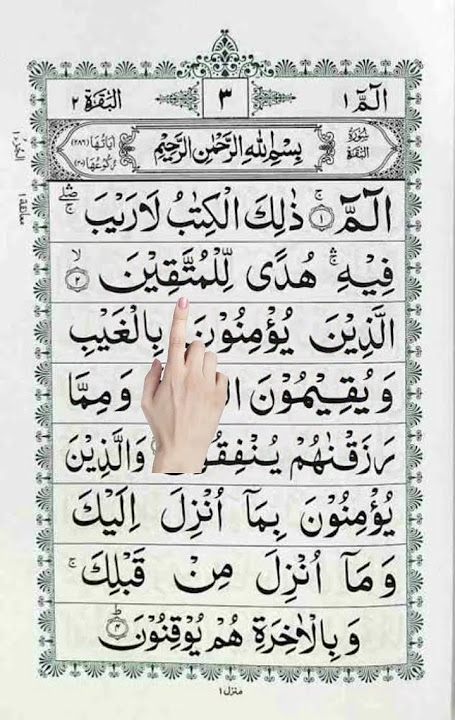 الٓمّٓ ١ ٣ الْبَقَرَة ٢
سُوْرَةُ الْبَقَرَةِ بِسْمِ اللهِ الرَّحْمٰنِ الرَّحِيْمِ اٰيَاتُهَا (٢٨٦) رُكُوْعُهَا (٤٠)
الٓمّٓ ۚ ١ ذٰلِكَ الْكِتٰبُ لَا رَيْبَ ۛۖۚ
فِيْهِ ۛۚ هُدًى لِّلْمُتَّقِيْنَ ۙ ٢
الَّذِيْنَ يُؤْمِنُوْنَ بِالْغَيْبِ
وَيُقِيْمُوْنَ وَمِمَّا
رَزَقْنٰهُمْ يُنْفِقُ وَالَّذِيْنَ
يُؤْمِنُوْنَ بِمَآ اُنْزِلَ اِلَيْكَ
وَمَآ اُنْزِلَ مِنْ قَبْلِكَ ۚ
وَبِالْاٰخِرَةِ هُمْ يُوْقِنُوْنَ ؕ ٤
منزل ١
الجزء ١
معانقة ١